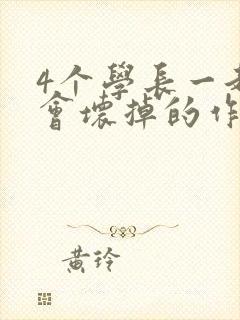 4个學長一起
會壞掉的作
黄玲